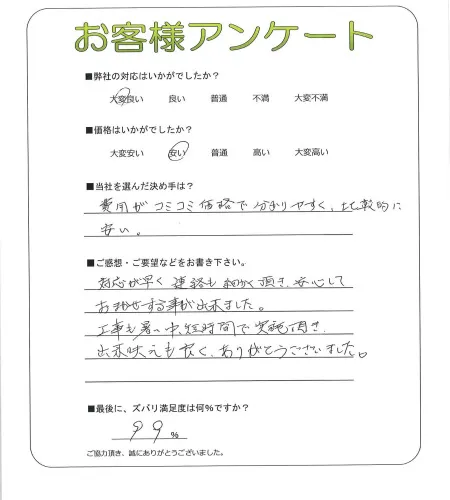 お客様アンケート
■弊社の対応はいかがでしたか?
大変良い 良い 普通 不満 大変不満
■価格はいかがでしたか?
大変安い 安い 普通 高い 大変高い
■当社を選んだ決め手は?
費用がコミコミ価格で分かりやすく、比較的に
安い。
■ご感想・ご要望などをお書き下さい。
対応が早く 連絡も細かく頂き、安心して
お任せする事が出来ました。
工事も暑い中、短時間で実施頂き、
出来映えも良く、ありがとうございました。
■最後に、ズバリ満足度は何%ですか?
99%
ご協力頂き、誠にありがとうございました。